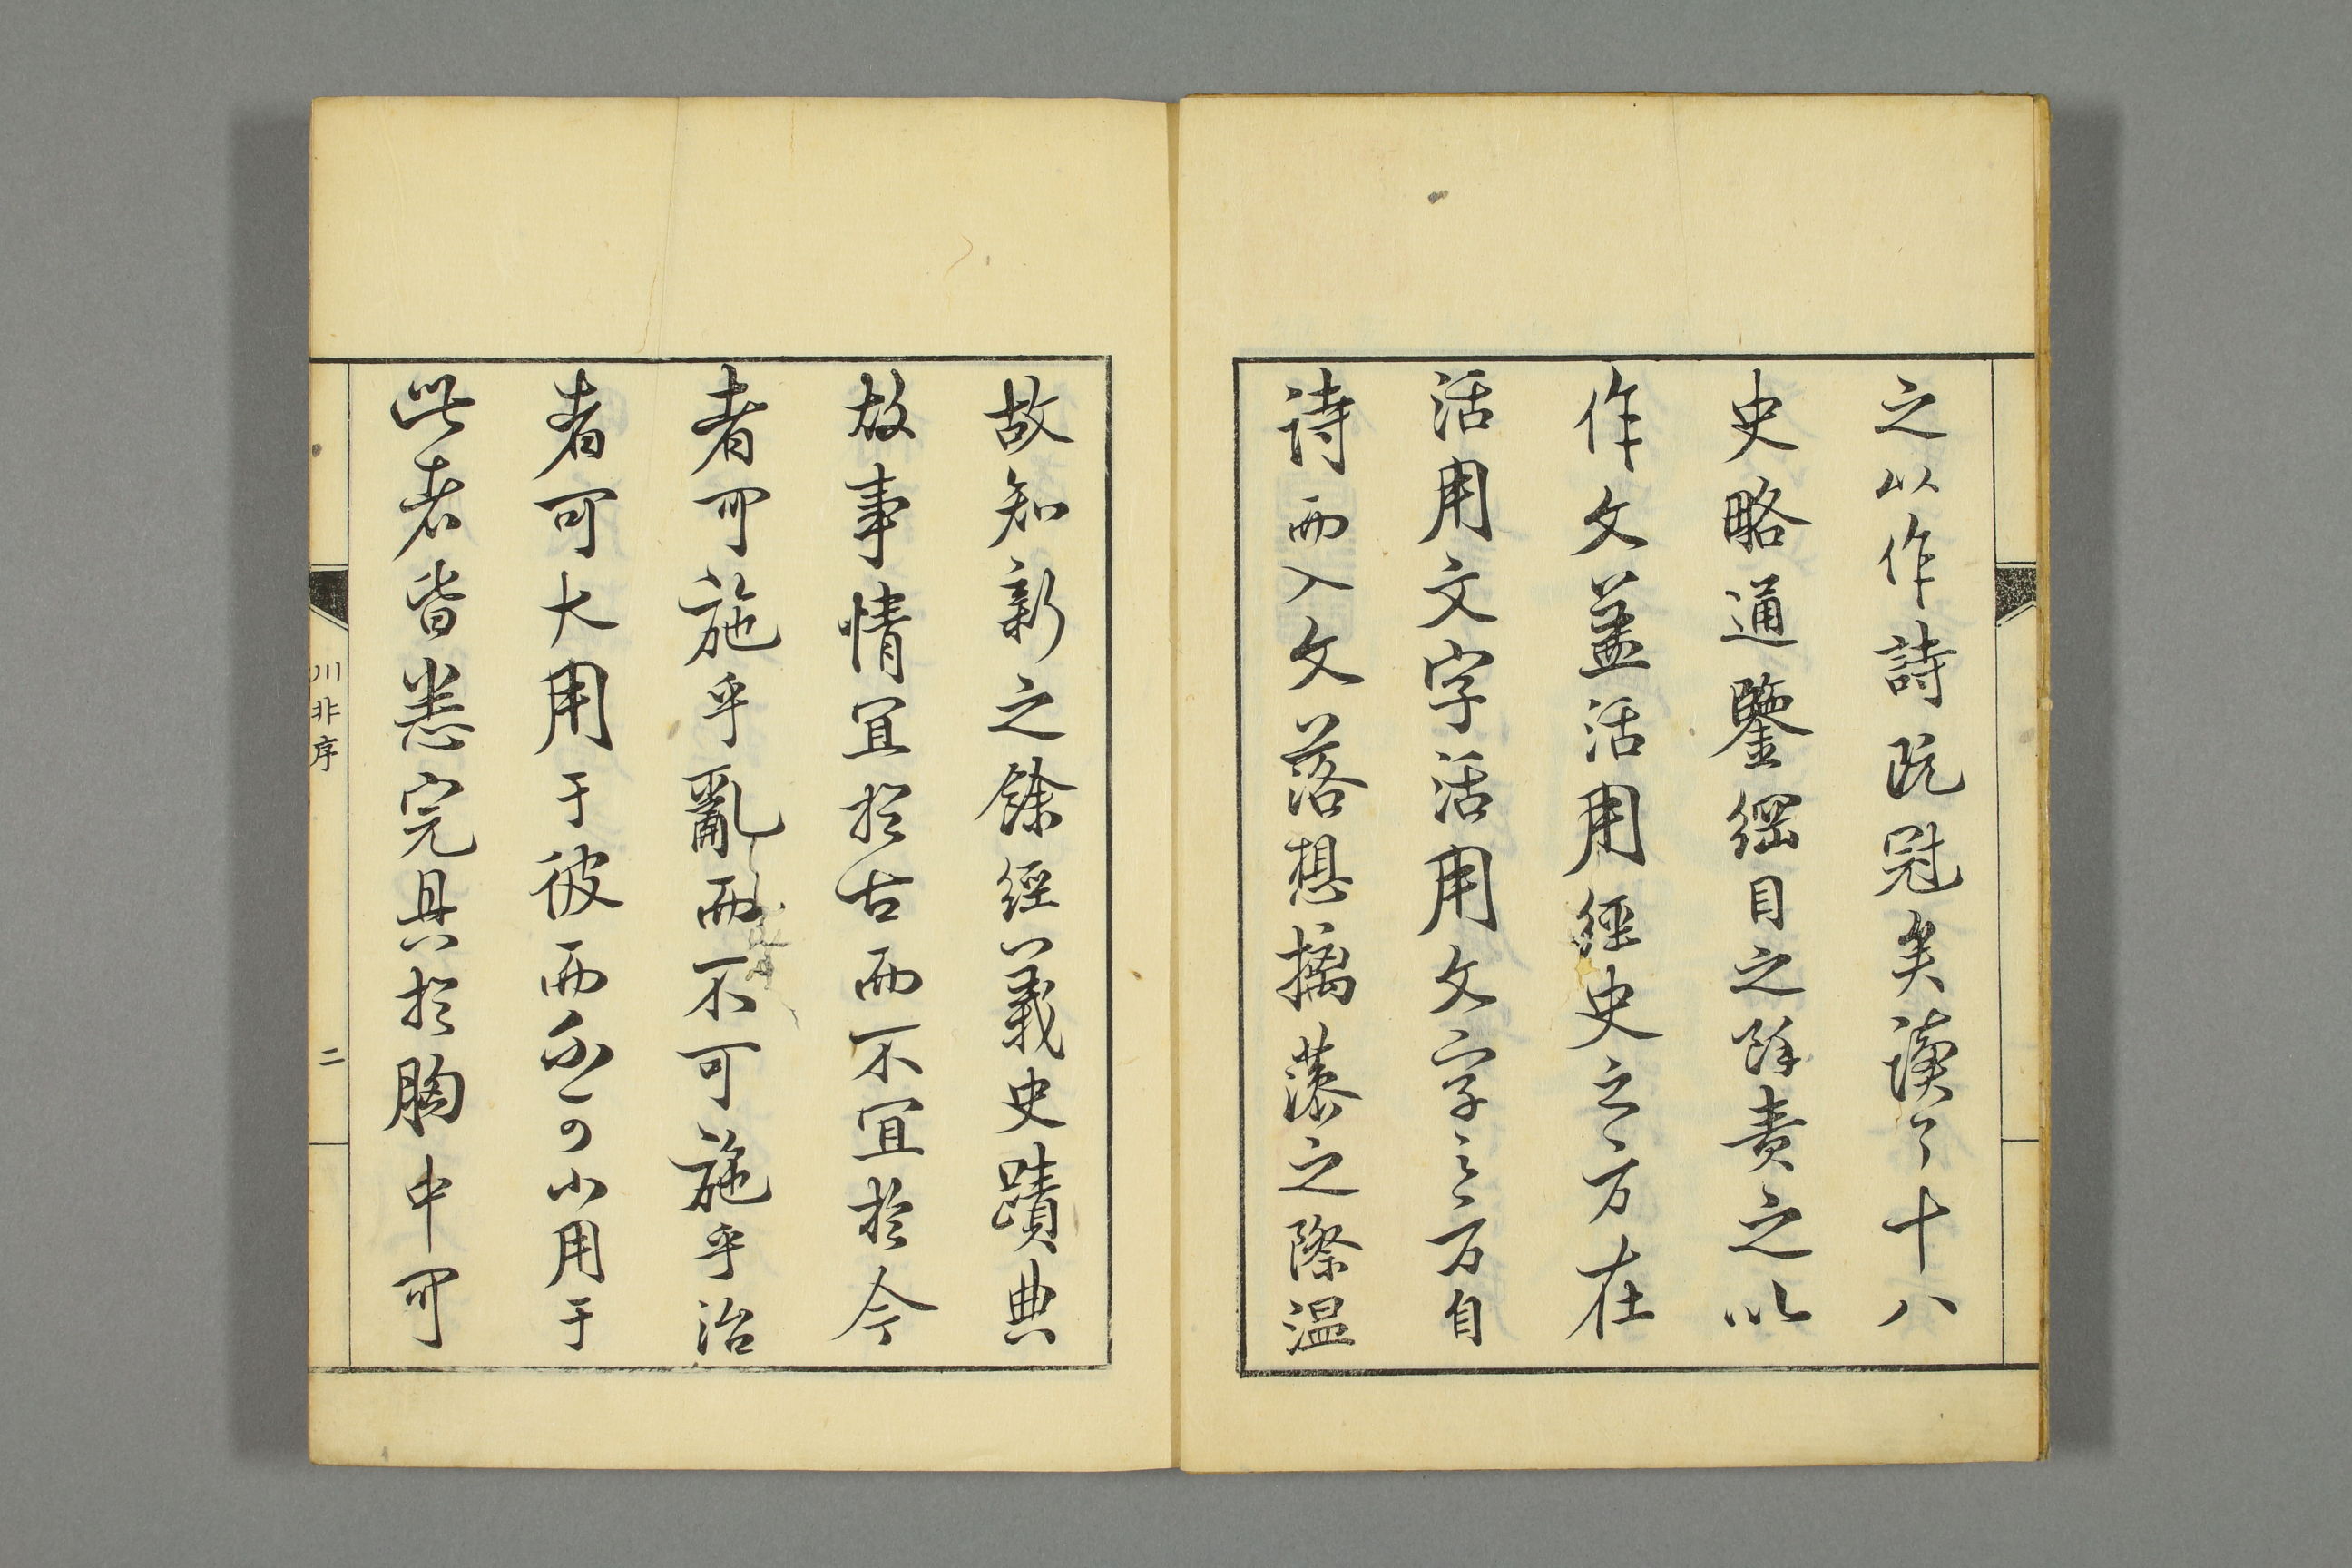 之以作詩既冠矣讀了十八
史略通鑒綱目之際責之以
作文蓋活用經史之方在
活用文字活用文字之方自
詩而入文落想摛藻之際溫
故知新之餘經義史蹟典
故事情宜於古而不宜於今
者可施乎亂而不可施乎治
者可大用于彼而不可小用于
此者皆悉完具於胸中可
川非序
二